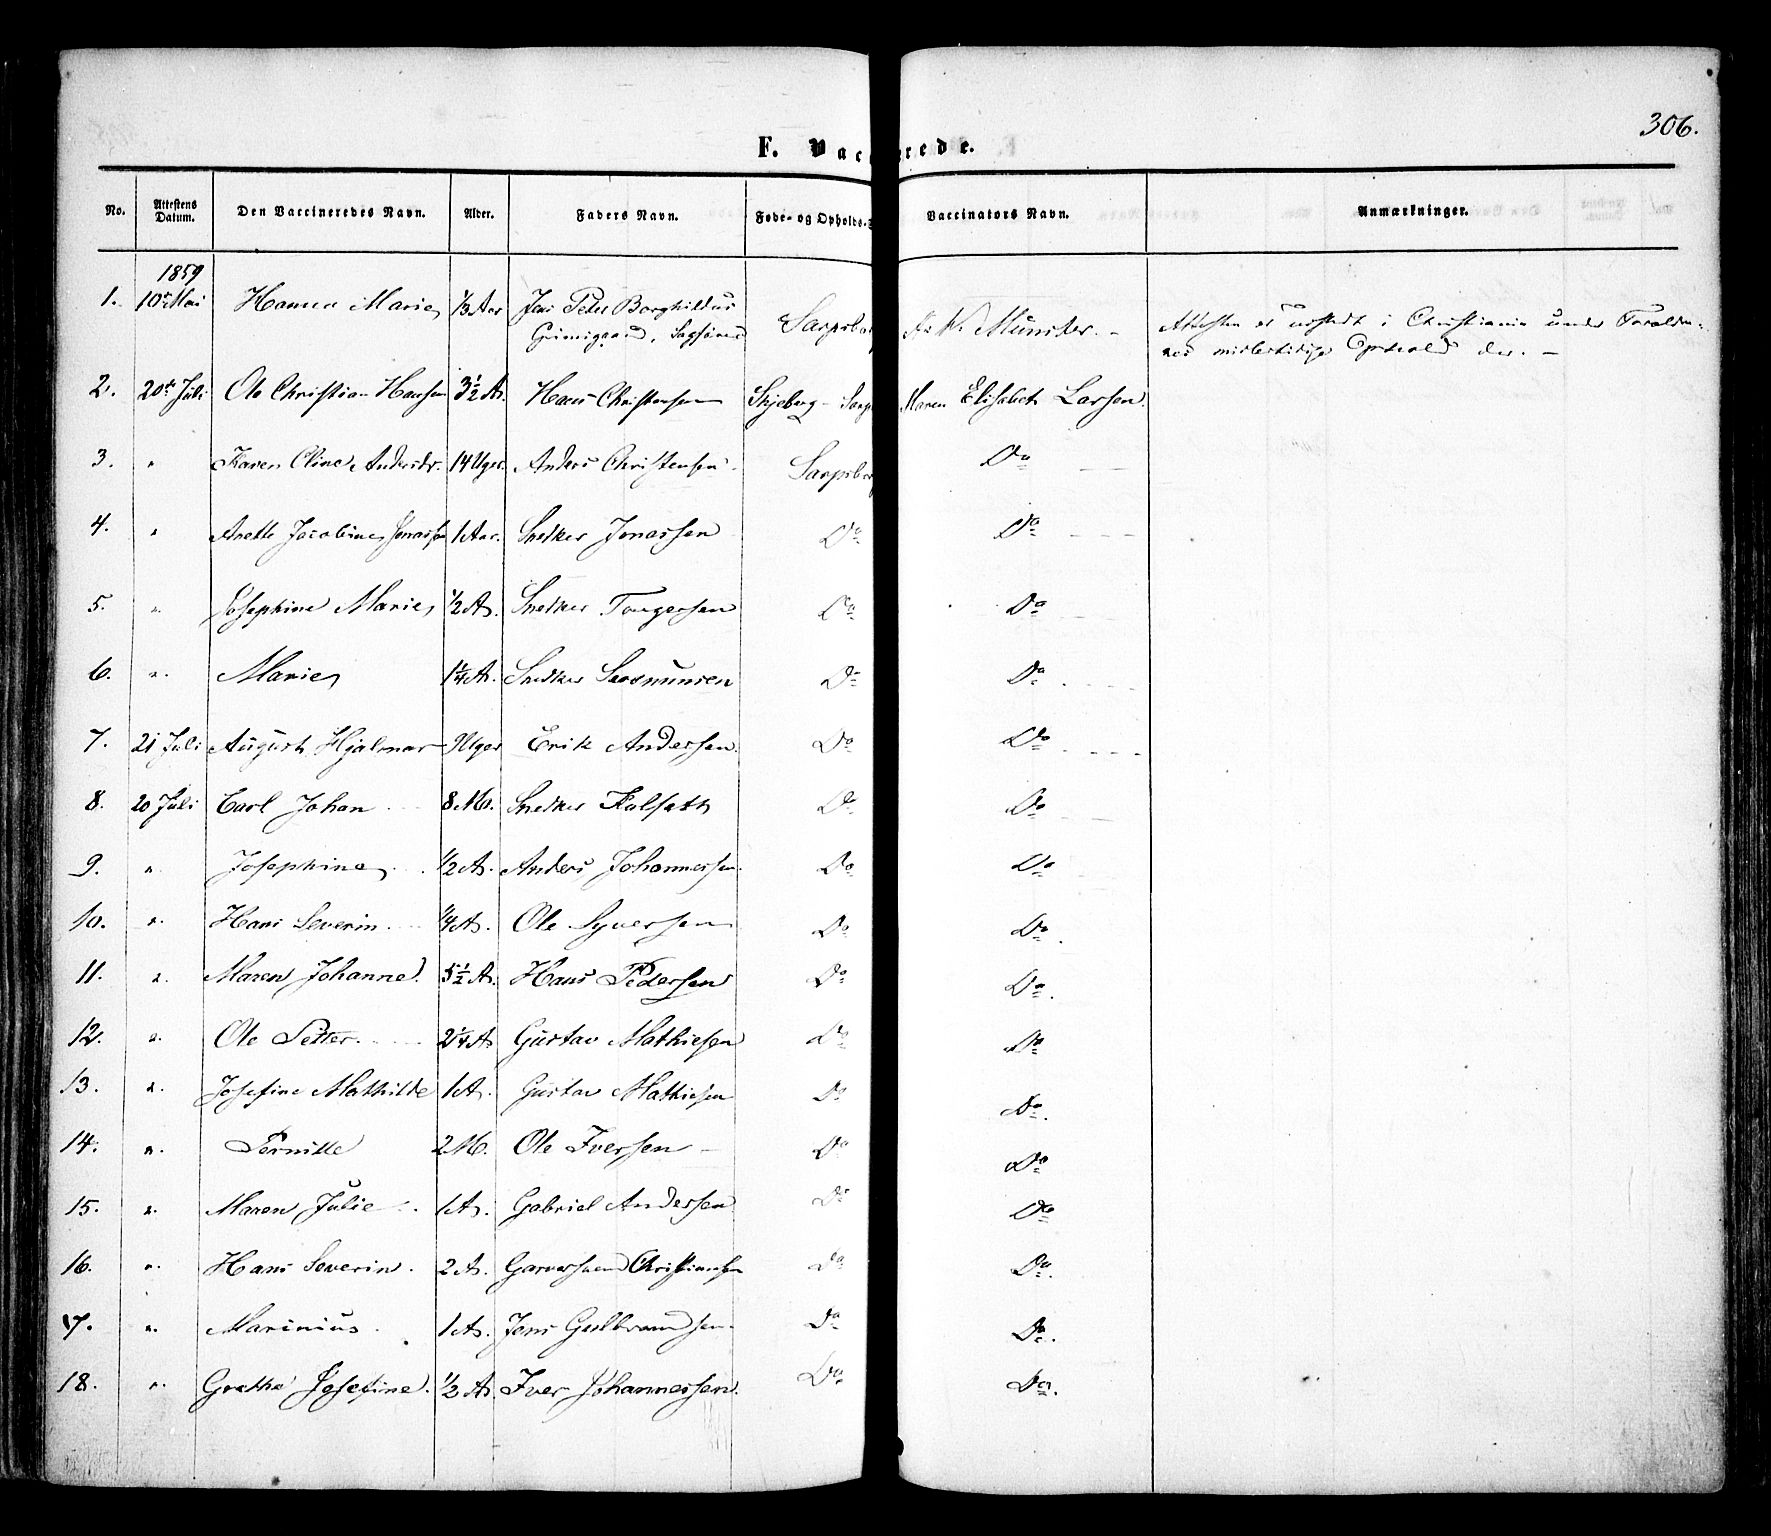 306.
F. Vaccinerede.
No. Attestens Datum. Den Vaccineredes Navn. Alder. Faders Navn. Føde- og Opholds- Vaccinators Navn. Anmærkninger.
1859
1. 10de Mai Hanna Marie 1/3 Aar Jens Peter Borghildus Sarpsborg W. Münster. - Attesten er udstedt i Christiania under
Grimsgaard, Sagfører midlertidige Ophold der. -
2. 20de Juli Ole Christian Hansen 3 1/2 A. Hans Christensen Skjeberg - Sarp Maren Elisabeth Larsen.
3. " Karen Oline Andersdr. 14 Uger. Anders Christensen. Sarpsborg Do
4. " Anette Jacobine Jonassen 1 Aar. Snedker Jonassen Do Do
5. " Josephine Marie 1/2 A. Snedker Torgersen Do Do
6. " Marie 1 1/4 A. Snedker Do Do
7. 21 Juli August Hjalmar 9 Uger Erik Andersen. Do Do
8. 20 Juli Carl Johan 8 M. Snedker Kolseth Do Do
9. " Josephine 1/2 A. Anders Johannessen. Do Do
10. " Hans Severin. 1/4 A. Ole Syversen Do Do.
11. " Maren Johanne. 5 1/2 A. Hans Pedersen Do Do.
12. " Ole Petter. 2 1/4 A. Gustav Mathiesen Do Do
13. " Josefine Mathilde 1 A. Gustav Mathiesen Do Do.
14. " Pernille 2 M. Ole Iversen Do Do
15. " Maren Julie 1 A. Gabriel Andersen Do Do
16. " Hans Severin. 2 A. Christiansen Do Do.
17. " Marinius. 1 A. Jens Gulbrandsen. Do Do.
18. " Grethe Josefine. 1/2 A. Iver Johannessen. Do Do.